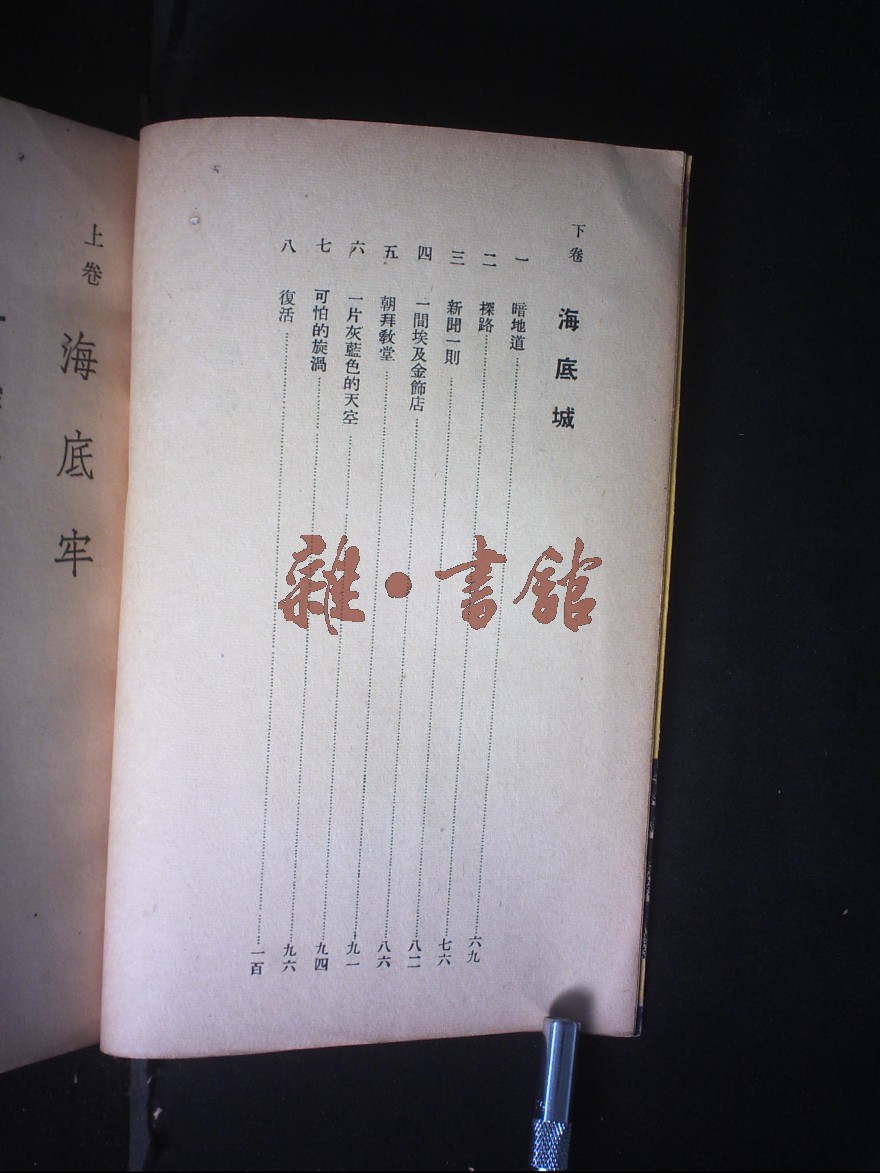 下卷 海底城
一 暗地道 六九
二 探路 七六
三 新聞一則 八二
四 一間埃及金飾店 八六
五 朝拜教堂 九一
六 一片灰藍色的天空 九四
七 可怕的旋渦 九六
八 復活 一百
上卷 海底牢
雜·書館